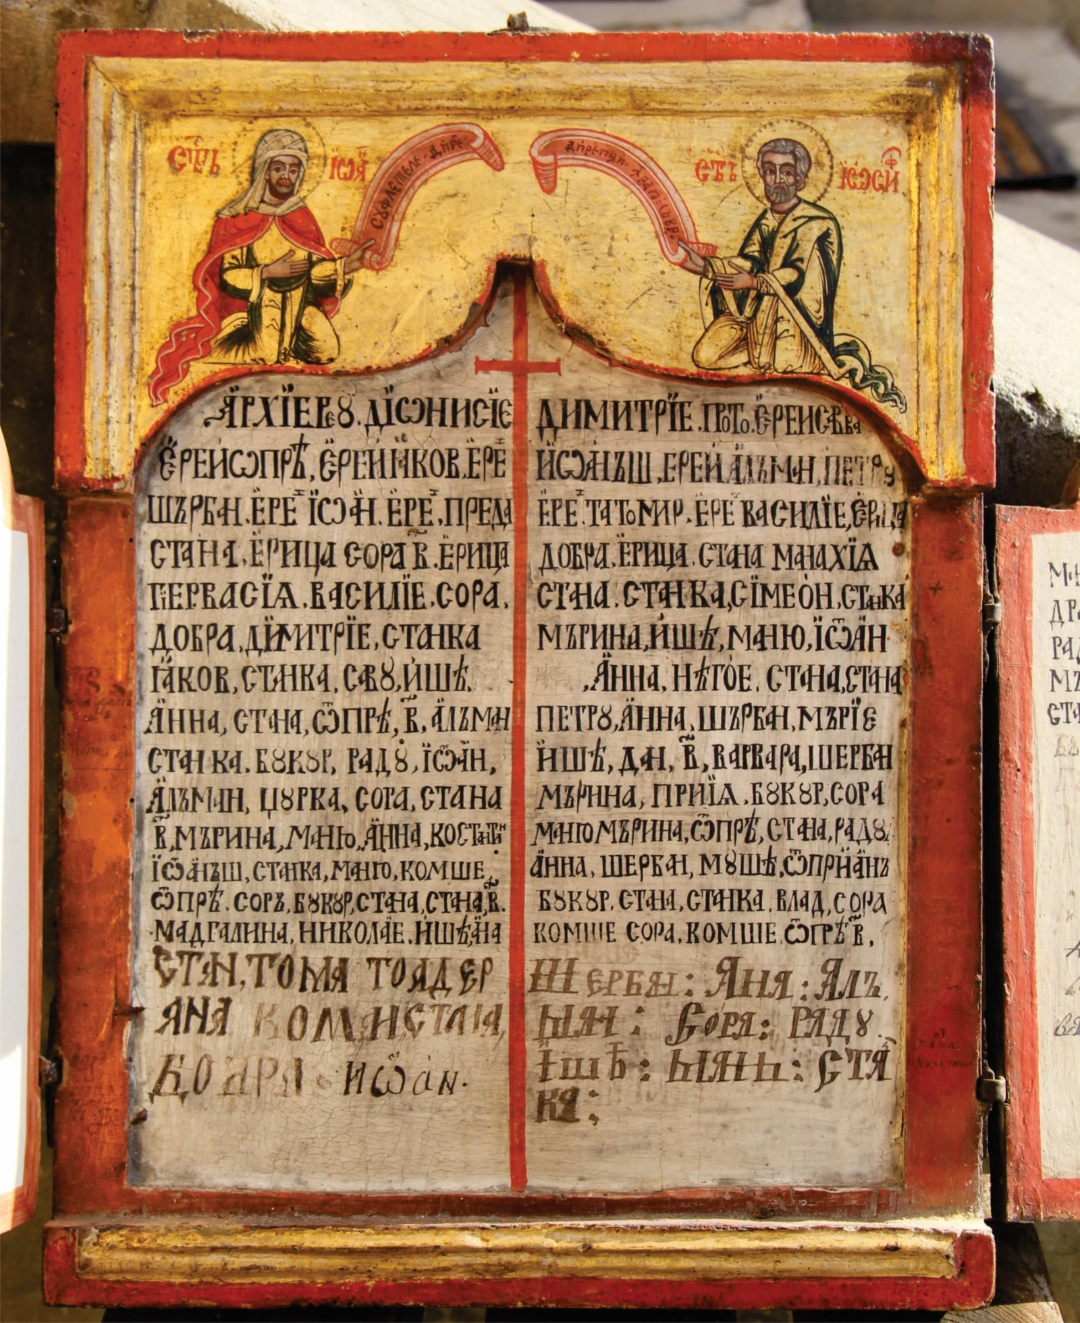 СТ҃Ь ІѠА҃
СУФЛЕТѢЛЕ ДИРЕ
СТ҃Ъ ІѠСИ҃Ф
А҆РХЇЕРЕꙊ. ДЇѠНИСЇЕ
Е҆РЕЙ ѠПРѢ, Е҆РЕЙ ІАКОВ. Е҆РЕ
ШЪРБАН. Е҆РЕ ІѠАН. Е҆РЕ. ПРЕДА
СТАНА. Е҆РИЦА СОРА В҃. Е҆РИЦА
ГЕРВАСЇѦ. ВАСИЛЇЕ. СОРА.
ДОБРА, ДИМИТРЇЕ, СТАНКА
ІАКОВ, СТАНКА, САВꙊ, И҆ШѢ.
А҆ННА, СТАНА, Ѡ҆ПРѢ, В҃, А҆ЛЪМАН
СТАНКА. БꙊКꙊР, РАДꙊ, ІѠАН,
А҆ЛЪМАН, ЦꙊРКА, СОРА, СТАНА
В҃, МЪРИНА, МАНЮ, А҆ННА, КОСТАТИ
ІѠАНЪШ, СТАНКА, МАНЮ, КОМШЕ
Ѡ҆ПРѢ. СОРЪ, БꙊКꙊР, СТАНА, СТАНА, В҃.
МАДГАЛИНА, НИКОЛАЕ. И҆ШѢ, А҆НА
СТАН, ТОМА ТОАДЕР
АНА КОМАН СТАНА,
ИѠ҆АН.
ДИМИТРЇЕ. ПРОТО. Е҆РЕИ САВВА
И҆ѠАНЪШ, ЕРЕЙ А҆ЛЪМАН, ПЕТРꙊ
Е҆РЕ. ТАТОМИР. Е҆РЕ ВАСИЛЇЕ, Е҆РИЦА
ДОБРА. Е҆РИЦА. СТАНА МАНАХЇѦ
СТАНА. СТАНКА, СЇМЕОН, СТАНКА
МЪРИНА, И҆ШѢ, МАНЮ, ІѠАН
, А҆ННА, НѢГОЕ. СТАНА, СТАНА
ПЕТРꙊ, А҆ННА, ШЪРБАН, МЪРЇЕ
И҆ШѢ, ДАН, В҃, ВАРВАРА, ШЕРБАН
МЪРИНА, ПРИЇѦ. БꙊКꙊР, СОРА
МАНЮ МЪРИНА, Ѡ҆ПРѢ, СТАНА, РАДꙊ
А҆ННА, ШЕРБАН, МꙊШѢ, Ѡ҆ПРИАНЪ
БꙊКꙊР. СТАНА, СТАНКА. ВЛАД, СОРА
КОМШЕ СОРА. КОМШЕ Ѡ҆ПРѢ В҃,
ШЕРБАН: АНА: АЛЪ
МАН: СОРА: РАДУ
ІШѢ: МАНЬ: СТА
КА: